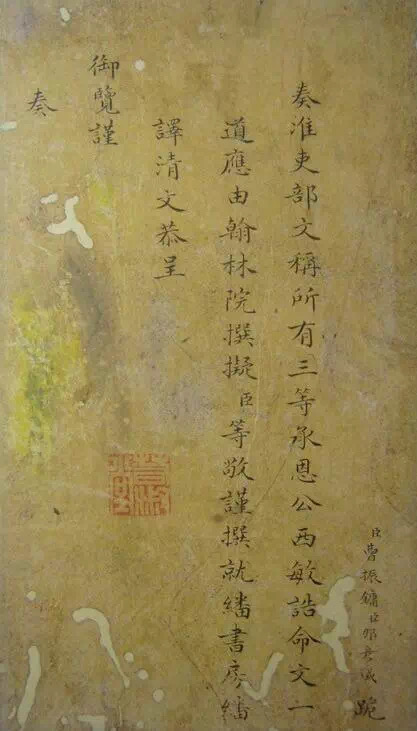 臣曹振鏞臣那彥成跪
奏准吏部文稱所有三等承恩公西敏誥命文一
道應由翰林院撰擬臣等敬謹撰就繙書房繙
譯清文恭呈
御覽謹
奏